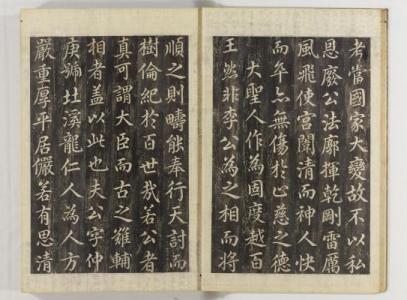 考當國家大變故不以私
恩廢公法廓揮乾剛雷厲
風飛使宮闈清而神人快
而卒亦無傷於止慈之德
大聖人作為固度越百
王然非李公為之相而將
順之則疇能奉行天討而
樹倫紀於百世哉若公者
真可謂大臣而古之難輔
相者蓋以此也夫公字仲
庚號溪龍仁人為人方
嚴重厚平居儼若有思清